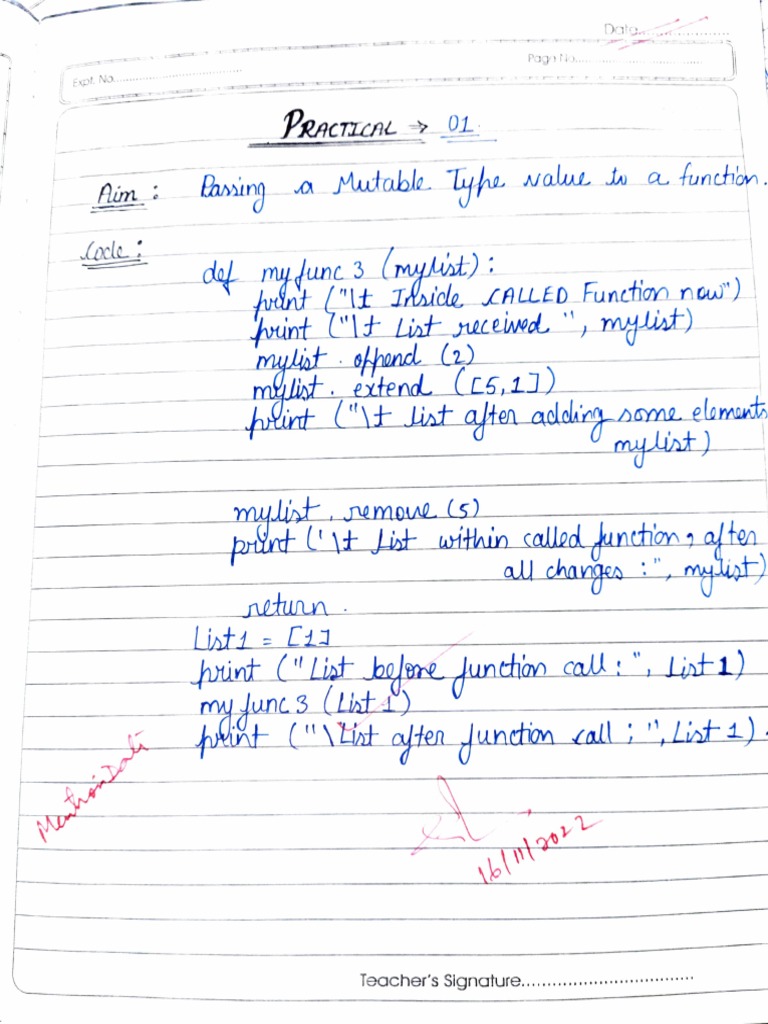 Date..................
Page No..............................
Expt. No................................
PRACTICAL → 01.
Aim : Passing a Mutable Type value to a function.
Code :
def myfunc 3 (mylist) :
print ("\t Inside CALLED Function now")
print ("\t List received ", mylist)
mylist . append (2)
mylist . extend ([5,1])
print ("\t list after adding some elements
mylist)
mylist . remove (5)
print ('\t List within called function, after
all changes :", mylist)
return .
List1 = [1]
print ("List before function call : ", List 1)
myfunc 3 (List 1)
print ("\List after function call ; ", List 1) .
Mention Date
16/11/2022
Teacher's Signature..................................